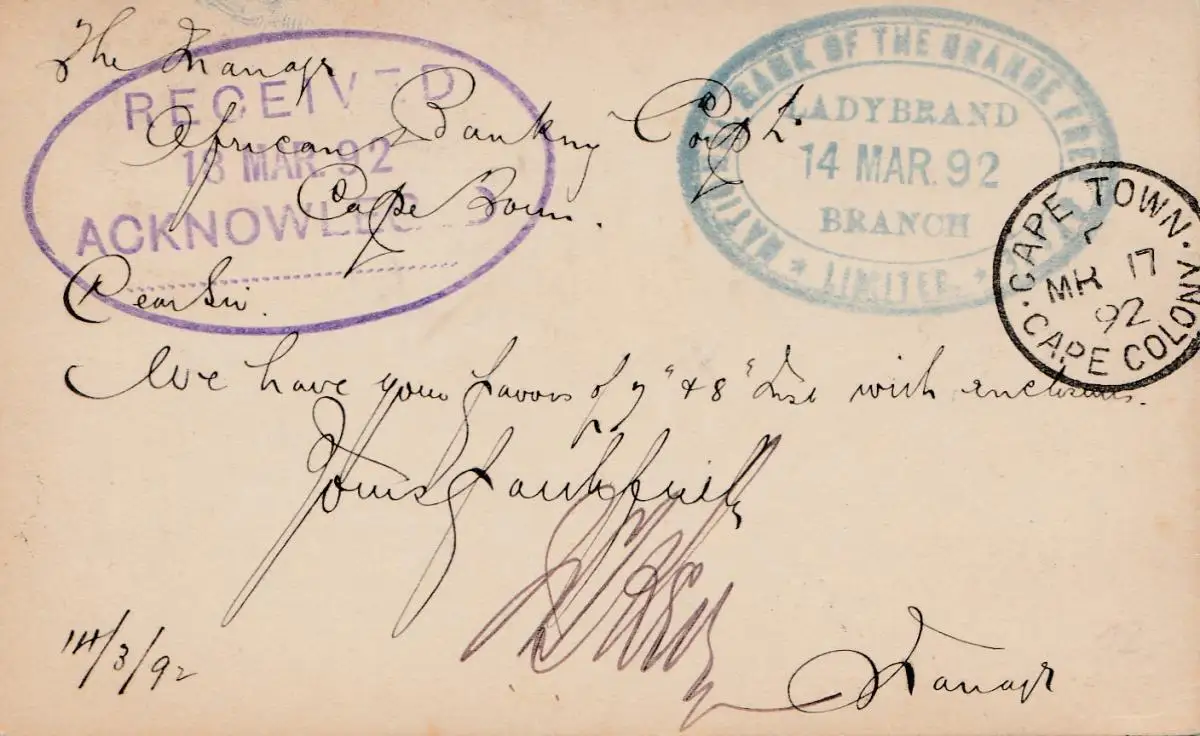 The Manager
African Banking Corp L.
Cape Town.
Dear Sir.
We have your favors of 7" & 8" Inst with enclosures.
Yours faithfully
Manager
14/3/92
RECEIVED
18 MAR. 92
ACKNOWLEDGED
NATIONAL BANK OF THE ORANGE FREE STATE
LADYBRAND
14 MAR. 92
BRANCH
LIMITED.
CAPE TOWN.
2
MR 17
92
CAPE COLONY